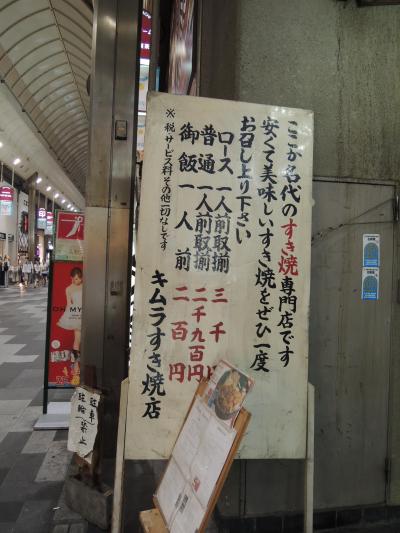 ここが名代のすき焼専門店です
安くて美味しいすき焼をぜひ一度
お召し上り下さい
ロース 一人前取揃 三千
普通 一人前取揃 二千九百円
御飯 一人前 二百円
※税サービス料その他一切なしです
キムラすき焼店
駐車
駐輪(禁止
プ
ON MY